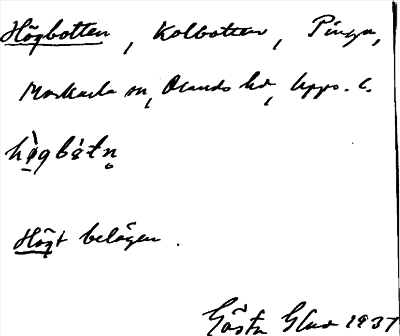 Högbotten, Kolbottnar, Pinga,
Morkarla sn, Olands hd, Upps. l.
hø̀gbåtn̥
Högt belägen.
Gösta Glad 1937